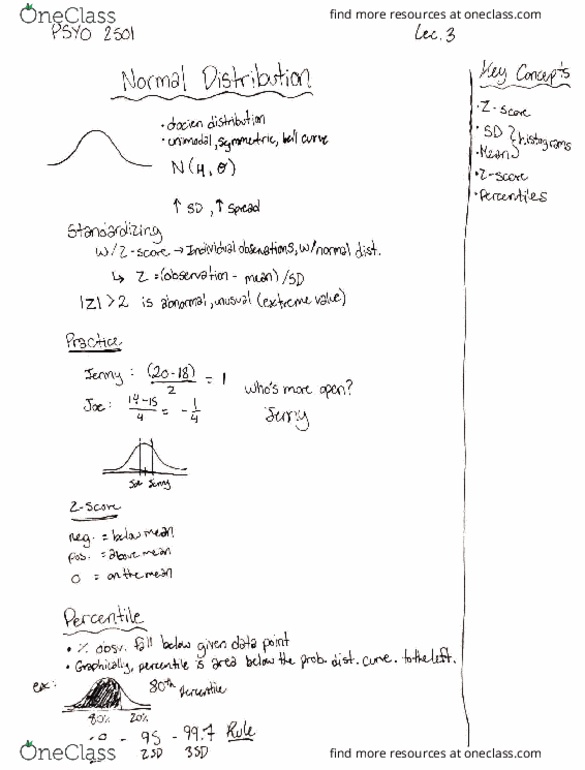 OneClass find more resources at oneclass.com
PSYO 2501 Lec. 3
Normal Distribution
distribution
• unimodal, symmetric, bell curve
N(μ, σ)
↑ SD, ↑ spread
Standardizing
w/ Z-score → Individual observations, w/ normal dist.
↳ Z = (observation - mean) / SD
|Z| > 2 is abnormal, unusual (extreme value)
Practice
Jenny: (20-18)/2 = 1
Joe: 14-15/4 = -1/4
Who's more open?
Jenny
Joe Jenny
Z-score
neg. = below mean
pos. = above mean
0 = on the mean
Percentile
• % obsv. fall below given data point
• Graphically, percentile is area below the prob. dist. curve. to the left.
ex: 80th percentile
80% 20%
- 95 - 99.7 Rule
2SD 3SD
Key Concepts
• Z-score
• SD
• Mean } histograms
• Z-score
• Percentiles
OneClass find more resources at oneclass.com